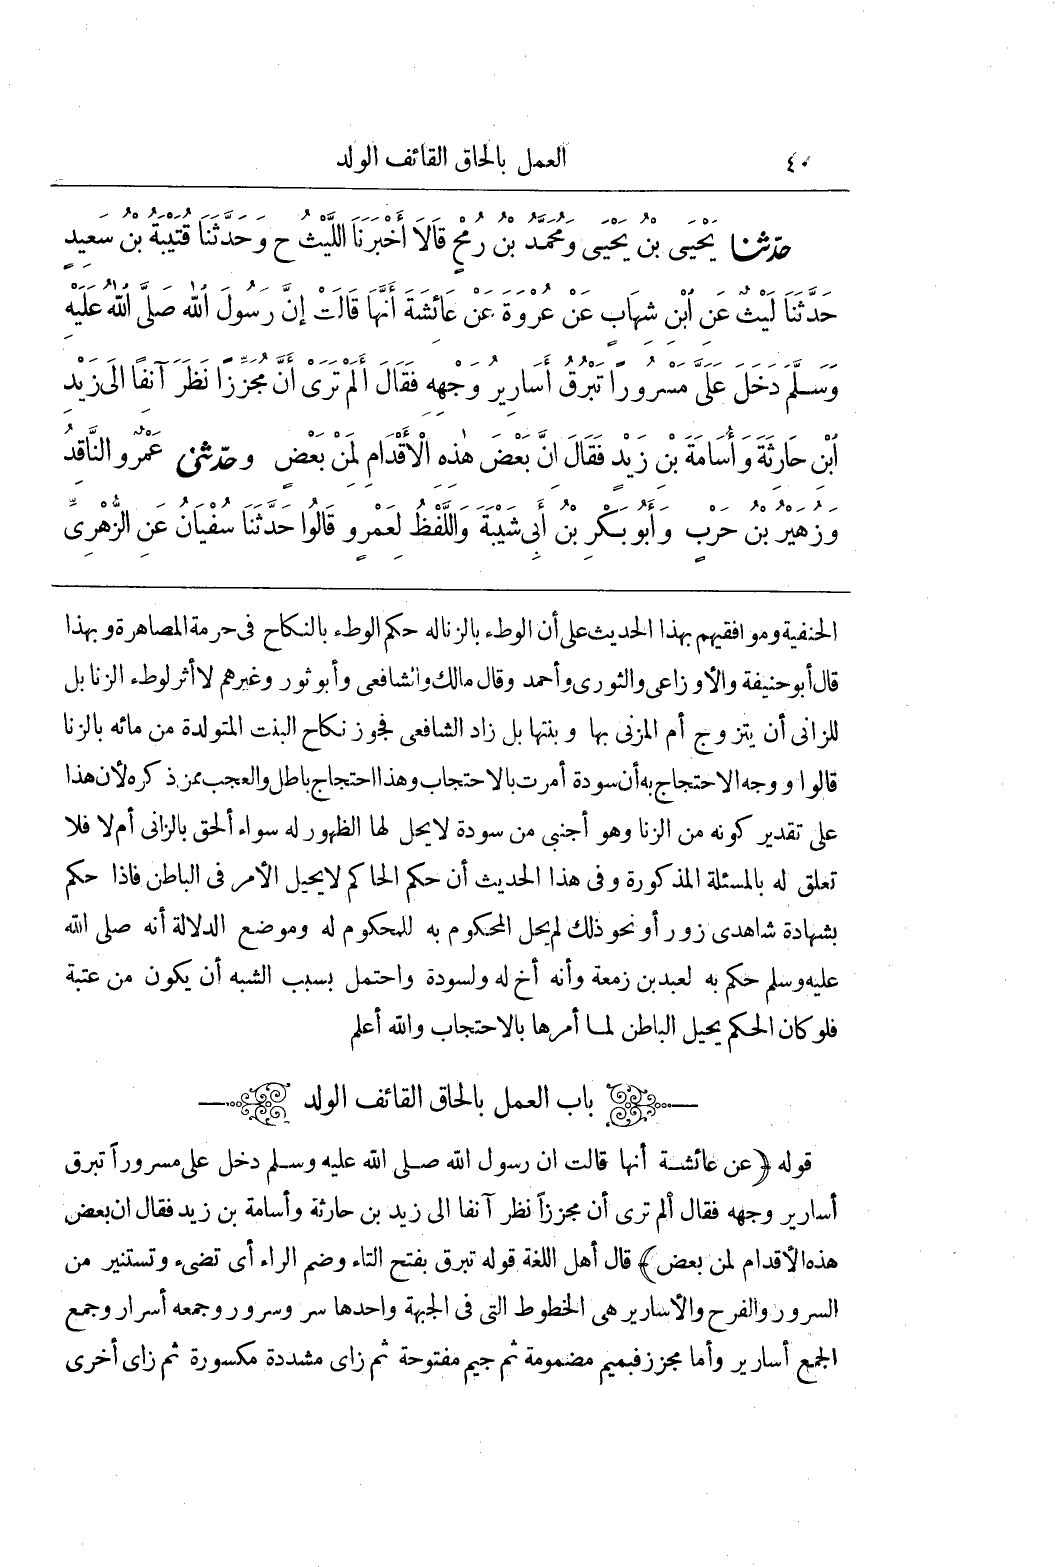 ٤٠ العمل بالحاق القائف الولد
حدّثنا يَحْيَى بْنُ يَحْيَى وَمُحَمَّدُ بْنُ رُمْحٍ قَالَا أَخْبَرَنَا اللَّيْثُ ح وَحَدَّثَنَا قُتَيْبَةُ بْنُ سَعِيدٍ
حَدَّثَنَا لَيْثٌ عَنِ ابْنِ شِهَابٍ عَنْ عُرْوَةَ عَنْ عَائِشَةَ أَنَّهَا قَالَتْ إِنَّ رَسُولَ اللهِ صَلَّى اللهُ عَلَيْهِ
وَسَلَّمَ دَخَلَ عَلَىَّ مَسْرُورًا تَبْرُقُ أَسَارِيرُ وَجْهِهِ فَقَالَ أَلَمْ تَرَىْ أَنَّ مُجَزِّزًا نَظَرَ آنِفًا إِلَى زَيْدِ
ابْنِ حَارِثَةَ وَأُسَامَةَ بْنِ زَيْدٍ فَقَالَ إِنَّ بَعْضَ هٰذِهِ الْأَقْدَامِ لَمِنْ بَعْضٍ وحدّثنى عَمْرٌو النَّاقِدُ
وَزُهَيْرُ بْنُ حَرْبٍ وَأَبُو بَكْرِ بْنُ أَبِى شَيْبَةَ وَاللَّفْظُ لِعَمْرٍو قَالُوا حَدَّثَنَا سُفْيَانُ عَنِ الزُّهْرِىِّ
الحنفية وموافقيهم بهذا الحديث على أن الوطء بالزنا له حكم الوطء بالنكاح فى حرمة المصاهرة وبهذا
قال أبو حنيفة والأوزاعى والثورى وأحمد وقال مالك والشافعى وأبو ثور وغيرهم لا أثر لوطء الزنا بل
للزانى أن يتزوج أم المزنى بها وبنتها بل زاد الشافعى فجوز نكاح البنت المتولدة من مائه بالزنا
قالوا ووجه الاحتجاج به أن سودة أمرت بالاحتجاب وهذا احتجاج باطل والعجب ممن ذكره لأن هذا
على تقدير كونه من الزنا وهو أجنبى من سودة لا يحل لها الظهور له سواء ألحق بالزانى أم لا فلا
تعلق له بالمسئلة المذكورة وفى هذا الحديث أن حكم الحاكم لا يحيل الأمر فى الباطن فاذا حكم
بشهادة شاهدى زور أو نحو ذلك لم يحل المحكوم به للمحكوم له وموضع الدلالة أنه صلى الله
عليه وسلم حكم به لعبد بن زمعة وأنه أخ له ولسودة واحتمل بسبب الشبه أن يكون من عتبة
فلو كان الحكم يحيل الباطن لما أمرها بالاحتجاب والله أعلم
باب العمل بالحاق القائف الولد
قوله ﴿عن عائشة أنها قالت ان رسول الله صلى الله عليه وسلم دخل على مسروراً تبرق
أسارير وجهه فقال ألم ترى أن مجززاً نظر آنفا الى زيد بن حارثة وأسامة بن زيد فقال ان بعض
هذه الأقدام لمن بعض﴾ قال أهل اللغة قوله تبرق بفتح التاء وضم الراء أى تضىء وتستنير من
السرور والفرح والأسارير هى الخطوط التى فى الجبهة واحدها سر وسرور وجمعه أسرار وجمع
الجمع أسارير وأما مجزز فبميم مضمومة ثم جيم مفتوحة ثم زاى مشددة مكسورة ثم زاى أخرى